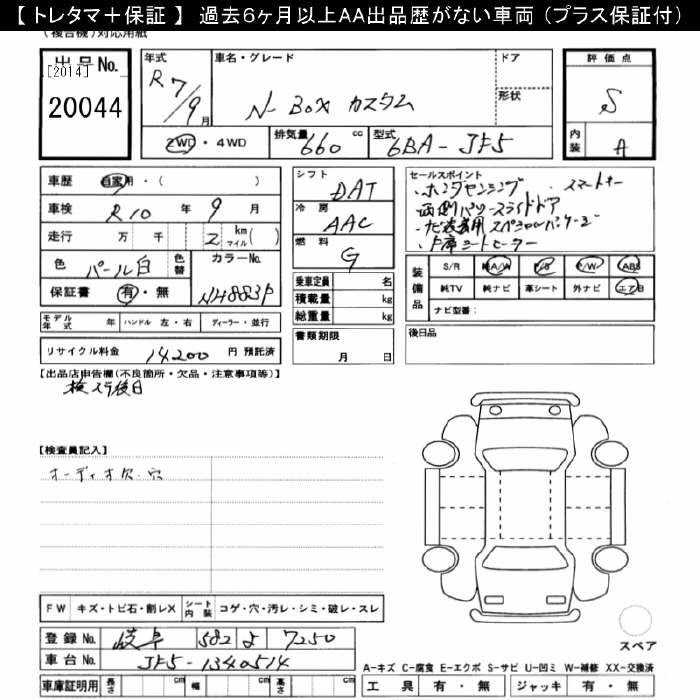 【 トレタマ＋保証 】 過去６ヶ月以上ＡＡ出品歴がない車両 (プラス保証付)
(複合機)対応用紙
出品No.
[2014]
20044
年式
R 7/9月
車名・グレード
N-BOX カスタム
ドア
形状
評価点
S
内装
A
2WD・4WD
排気量
660 cc
型式
6BA-JF5
車歴 自家用・( )
車検 R10 年 9 月
走行 万 千 2 km マイル( )
色 パール白 色替
カラーNo.
NH883P
保証書 有・無
シフト
DAT
冷房
AAC
燃料
G
乗車定員 名
積載量 kg
総重量 kg
書類期限
月 日
セールスポイント
・ホンダセンシング ・スマートキー
・両側パワースライドドア
・ナビ装着用スペシャルパッケージ
・前席シートヒーター
装備品
S/R 純A/W P/S P/W ABS
純TV 純ナビ 革シート 外ナビ エアB
ナビ型番：
後日品
モデル年式 年 ハンドル 左・右 ディーラー・並行
リサイクル料金 14,200 円 預託済
【出品店申告欄(不良箇所・欠品・注意事項等)】
検ステ後日
【検査員記入】
オーディオ欠・穴
FW キズ・トビ石・割レX シート内装 コゲ・穴・汚レ・シミ・破レ・スレ
登録No. 岐阜 582 よ 7250
車台No. JF5-1340514
車庫証明用 長さ cm 幅 cm 高さ cm
スペア
A-キズ C-腐食 E-エクボ S-サビ U-凹ミ W-補修 XX-交換済
工具 有・無 ジャッキ 有・無